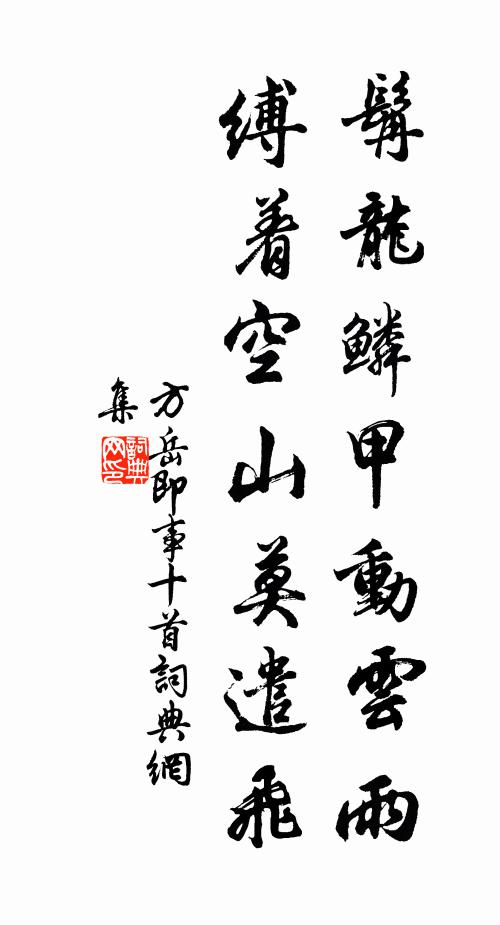 髯龍鱗甲動雲雨
縛着空山莫遣飛
方岳即事十首詞典網
集
詞典网印